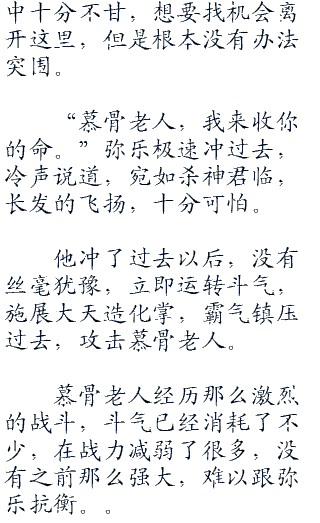 中十分不甘，想要找机会离
开这里，但是根本没有办法
突围。
“慕骨老人，我来收你
的命。”弥乐极速冲过去，
冷声说道，宛如杀神君临，
长发的飞扬，十分可怕。
他冲了过去以后，没有
丝毫犹豫，立即运转斗气，
施展大天造化掌，霸气镇压
过去，攻击慕骨老人。
慕骨老人经历那么激烈
的战斗，斗气已经消耗了不
少，在战力减弱了很多，没
有之前那么强大，难以跟弥
乐抗衡。。